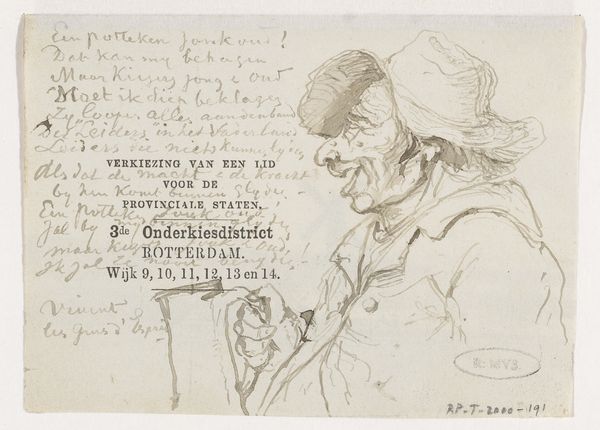 Een potteken jonk oud!
Dat kan my behagen
Maar Kiezers jong & oud
Moet ik diep beklagen
Zy loopen alles aan den band
Des Leiders in het Vaderland
Leiders die niets kunnen
Als dat de macht & de kracht
by hen komt binnen
Een potteken jonk oud!
Zal by my
maar
Ik zal
VERKIEZING VAN EEN LID
VOOR DE
PROVINCIALE STATEN.
3de Onderkiesdistrict
ROTTERDAM.
Wijk 9, 10, 11, 12, 13 en 14.
Vivent
les Gens d'Esprit
R. MVS.
RP-T-2000-191